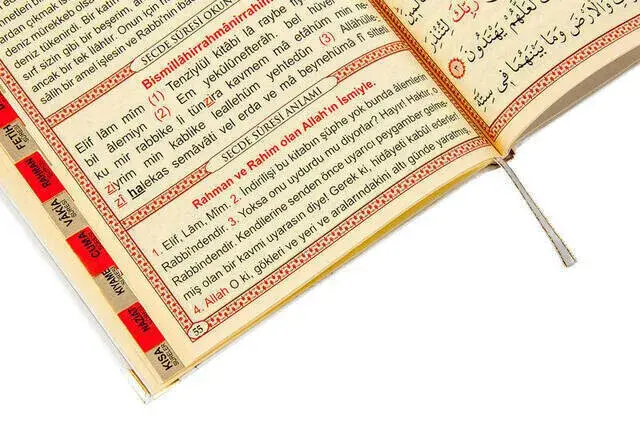 deniz tükenirdi. Bir
sırf sizin gibi bir beşerim,
ancak bir tek ilâhtır. Onun için
sâlih bir amel işlesin ve Rabbi'nin
SECDE SÛRESİ OKUN
Bismillâhirrahmânirrahîm
Elif lâm mîm (1) Tenzîlül kitâbi lâ raybe
bil âlemiyn (2) Em yekûlûnefterâh. bel hüvel
ku mir rabbike li tünzira kavmem mâ etâhüm min
ziyrim min kablike leallehüm yehtedûn (3) Allâhülle-
zî halekas semâvâti vel erda ve mâ beynehümâ fî sitteti
SECDE SÛRESİ ANLAMI
Rahman ve Rahim olan Allah'ın İsmiyle.
1. Elif, Lâm, Mim. 2. İndirilişi bu kitabın şüphe yok bunda âlemlerin
Rabbi'ndendir. 3. Yoksa onu uydurdu mu diyorlar? Hayır! Haktır, o
Rabbindendir. Kendilerine senden önce uyarıcı peygamber gelme-
miş olan bir kavmi uyarasın diye! Gerek ki, hidâyeti kabûl ederler!
4. Allah O ki, gökleri ve yeri ve aralarındakini altı günde yaratmış,
55
رَبِّكَ لِتُنْذِرَ
لَعَلَّهُمْ يَهْتَدُونَ
وَالْأَرْضَ وَمَا بَيْنَهُمَا فِي سِتَّةِ
FETİH
RAHMAN
VÂKIA
CUMA
KIYAME
NAZİAT
KISA
SÛRELER